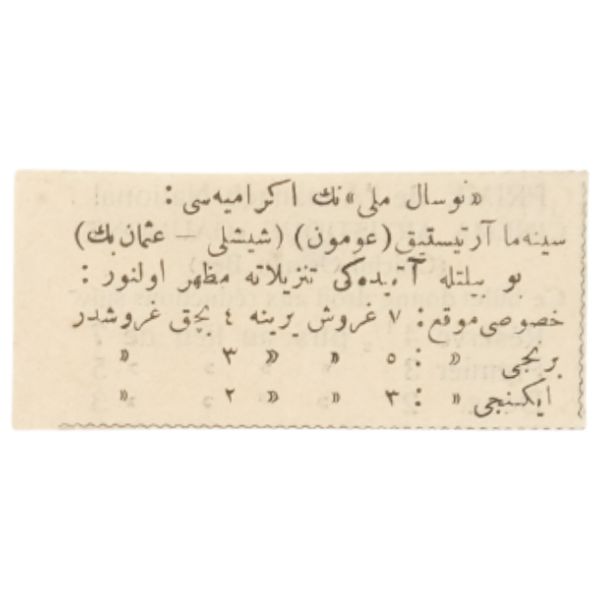 «نوسال ملی» نك اكرامیه‌سی :
سینه‌ما آرتیستیق (غومون) (شیشلی — عثمان بك)
بو سلتله آتیده‌كی تنزیلاته مظهر اولنور :
خصوصی موقع : ٧ غروش یرینه ٤ بچق غروشدر
برنجی » : ٥ » » ٣ »
ایكنجی » : ٣ » » ٢ »